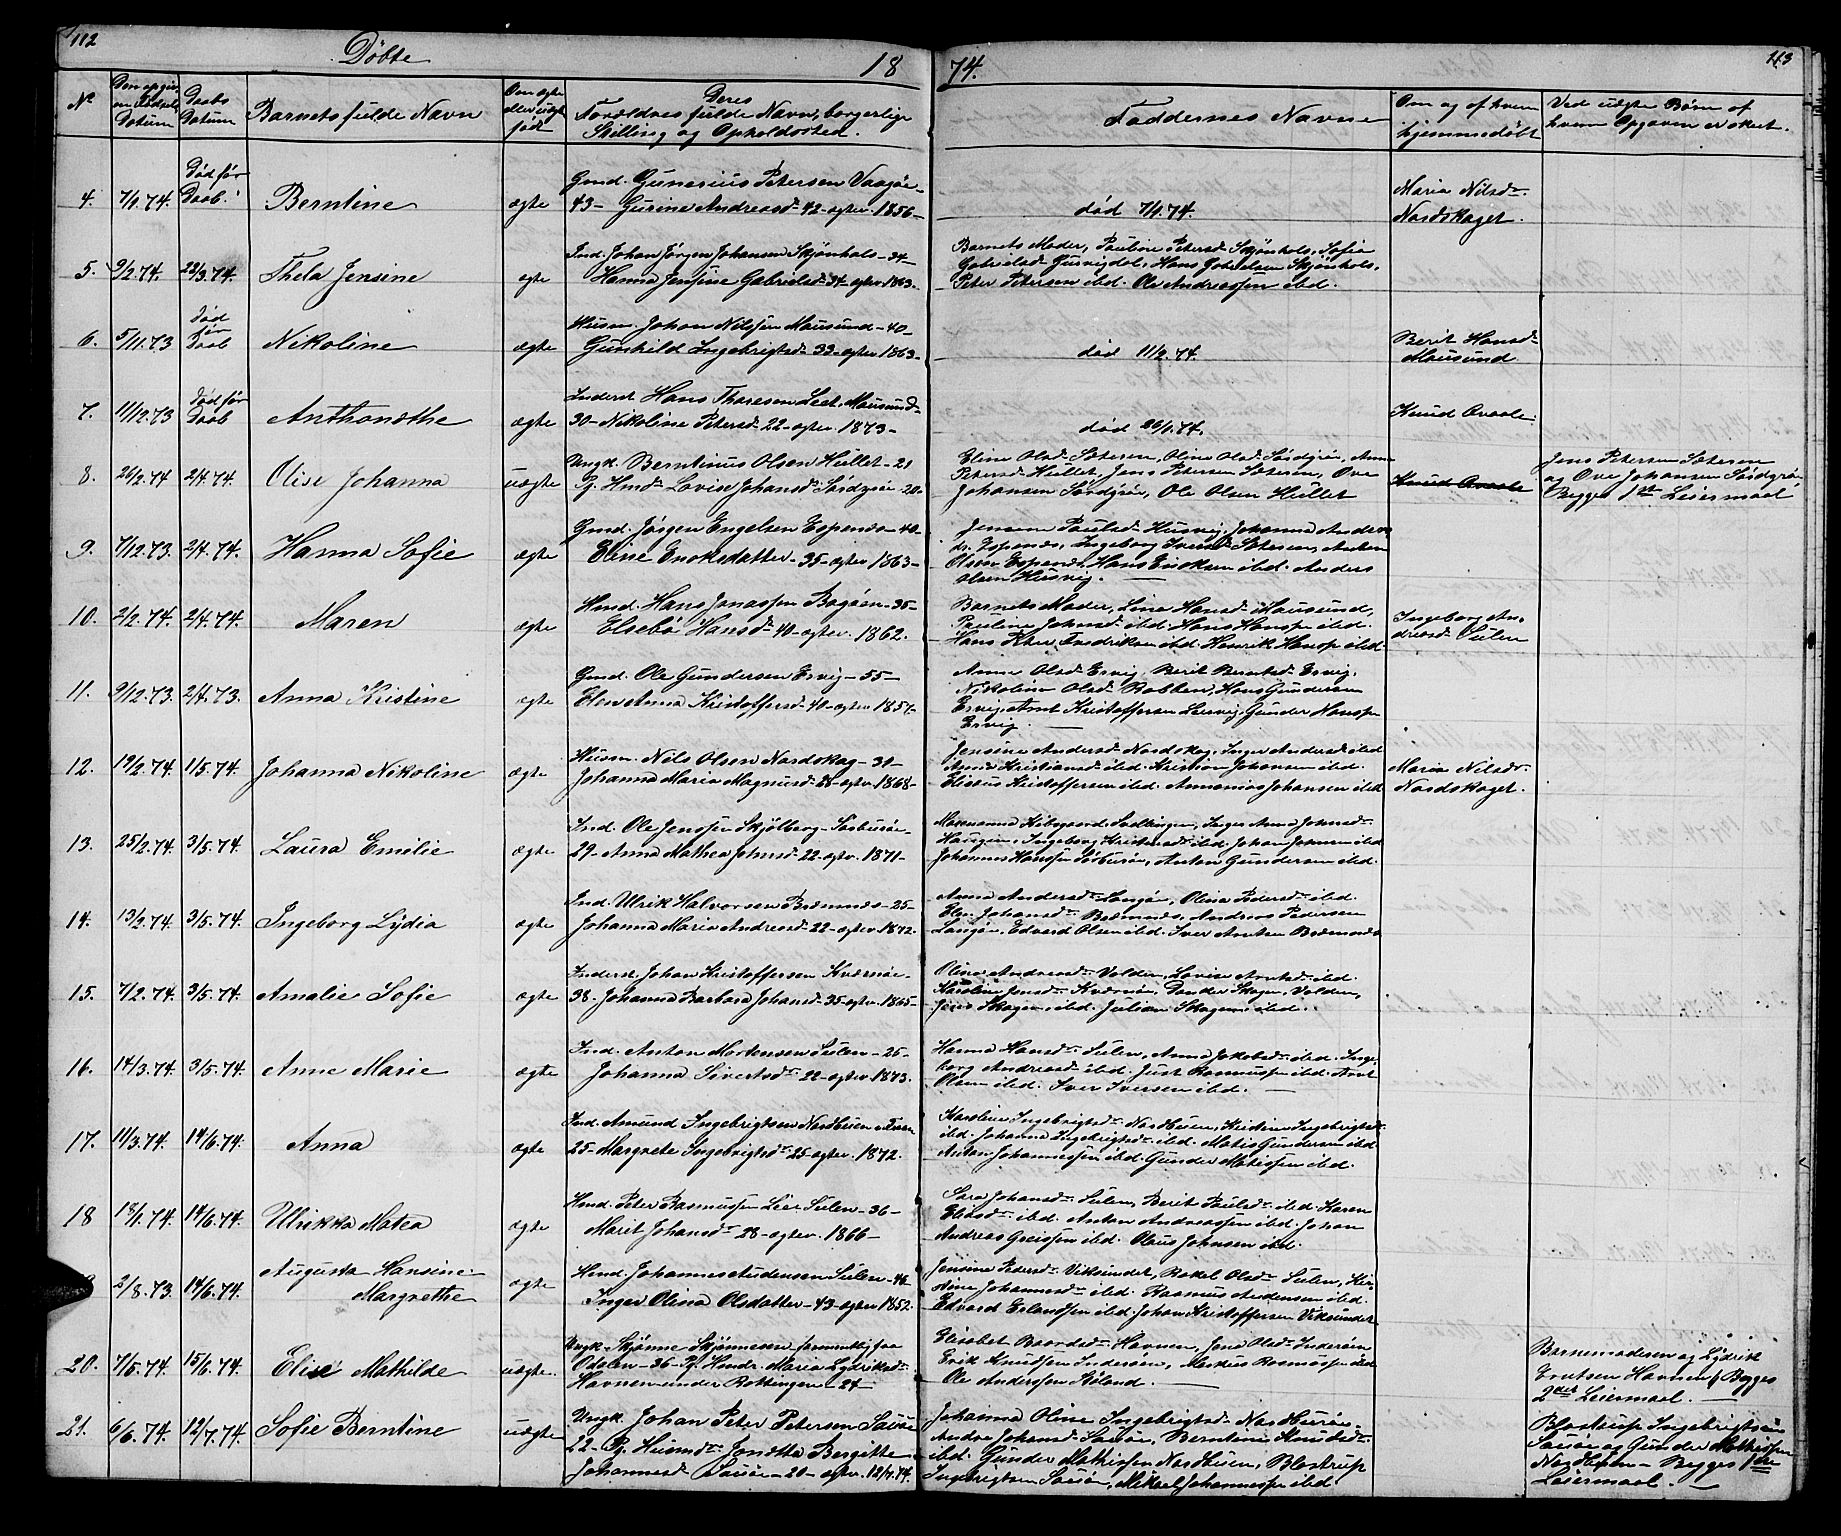 112
Døbte
18
74.
113
No
Den opgivne Fødsels Datum
Daabs Datum
Barnets fulde Navn
Om ægte eller uægte født
Deres Forældres fulde Navn, borgerlige Stilling og Opholdssted.
Faddernes Navne
Om og af hvem hjemmedøbt
Ved uægte Børn af hvem Opgaven er skeet.
4. 7/1.74. Død før Daab. Berntine ægte
Gmd. Gunerius Petersen Vaagøe
43 - Gurine Andreasdr 42 - ægtev. 1856 -
død 7/1.74.
Maria Nilsdr
Nordskaget.
5. 9/2.74. 22/3.74. Thela Jensine ægte
Ind. Johan Jørgen Johansen Skjønhols - 34 -
Hanna Jensine Gabrielsdr 34 - ægtev. 1863.
Barnets Moder, Pauline Petersdr Skjønhols, Sofie
Gabrielsdr Gurvigdal, Hans Gabrielsen Skjønhols,
Peter Petersen ibd. Ole Andreassen ibd.
6. 5/11.73 Død før Daab Nikoline ægte
Husm. Johan Nilssen Mausund - 40 -
Gunhild Ingebrigtsdr 33 - ægtev. 1863 -
død 11/2.74.
Berit Hansdr
Mausund
7. 11/12.73 Død før Daab Anthonethe ægte
Inderst Hans Tharesen Leet, Mausund -
30 - Nikoline Petersdr 22 - ægtev. 1873 -
død 26/1.74.
Knud Ovaale
8. 26/2.74 2/4.74. Olise Johanna uægte
Ungk. Berntinus Olsen Hullet - 21
Pg. Hmdr Lovise Johansdr Sørdyrøe - 20.
Eline Olsdr Sætersen, Olina Olsdr Sørdyrøe, Anne
Petersdr Hullet, Jens Petersen Sætersen, Ove
Johansen Sørdyrøe, Ole Olsen Hullet
Knud Ovaale
Jens Petersen Sætersen
og Ove Johansen Sørdyrøe
Begges 1ste Leiermaal
9. 7/12.73. 2/4.74. Hanna Sofie ægte
Gmd. Jørgen Engelsen Espenæs - 40 -
Elene Enoksdatter - 35 - ægtev. 1863 -
Jensine Paulsdr Husvig, Johanna Anders
dr. Espenæs, Ingeborg Iversdr Sætersen, Anders
Olsen Espenæs, Hans Enoksen ibd. Anders
Olsen Husvig.
10. 2/2.74. 2/4.74. Maren ægte
Hmd. Hans Jonassen Bogøen - 35 -
Elsebø Hansdr 40 - ægtev. 1862.
Barnets Moder, Lina Hansdr Mausund,
Pauline Johnsdr ibd. Hans Hanssen ibd.
Hans Kher Fredriksen ibd. Henrik Hanssen ibd.
Ingeborg An-
dreasdr Sulen
11. 9/12.73. 2/4.73. Anna Kristine ægte
Gmd. Ole Gundersen Ervig - 55 -
Elen Anna Kristoffersdr 40 - ægtev. 1857.
Anne Olsdr Ervig, Berit Berntsdr Ervig,
Nikoline Olsdr Robben, Hans Gundersen
Ervig, Arnt Kristoffersen Leirvig, Gunder Hanssen
Ervig.
12. 19/2.74. 1/5.74. Johanna Nikoline ægte
Husm. Nils Olsen Nordskag - 31 -
Johanna Maria Magnusdr 28 - ægtev. 1868 -
Jensine Andersdr Nordskag, Inger Andersdr ibd.
Anne Kristiansdr ibd. Kristian Johansen ibd.
Elisæus Kristoffersen ibd. Annanias Johansen ibd.
Maria Nilsdr
Nordskaget.
13. 25/2.74. 3/5.74. Laura Emilie ægte
Ind. Ole Jenssen Skjølberg - Sørburøe -
29 - Anna Mathea Johnsdr 22 - ægtev. 1871 -
Marenanna Kibsgaard Svellingen, Inger Anna Johnsdr
Haugøien, Ingeborg Kristensdr ibd. Johan Johnsen ibd.
Johannes Hanssen Sørburøe, Anton Gundersen ibd.
14. 13/2.74. 3/5.74. Ingeborg Lydia ægte
Ind. Ulrik Halvorsen Bremnæs - 25 -
Johanna Maria Andreasdr 22 - ægtev. 1872.
Anna Andersdr Langøe, Olina Pedersdr ibd.
Elen Johansdr Bremnæs, Andreas Pedersen
Langøe, Edvard Olsen ibd. Iver Arntsen Bremnæs
15. 7/2.74. 3/5.74. Amalie Sofie ægte
Inderst Johan Kristoffersen Kværnøe -
38. Johanna Barbara Johansdr 35 - ægtev. 1865 -
Olina Andreasdr Volden, Lovise Arntsdr ibd.
Karoline Jensdr Kværnøe, Sander Skagen, Volden,
Jens Skagen ibd. Julian Skagen ibd.
16. 14/3.74. 3/5.74. Anne Marie ægte
Ind. Anton Mortensen Sulen - 25 -
Johanna Sivertsdr 22 - ægtev. 1873.
Hanna Hansdr Sulen, Anna Jakobsdr ibd. Inge-
borg Andreasdr ibd. Just Rasmussen ibd. Arnt
Olsen ibd. Iver Iversen ibd.
17. 11/3.74. 14/6.74. Anna ægte
Ind. Amund Ingebrigtsen Nordbuen
25 - Margrete Ingebrigtsdr 25 - ægtev. 1872.
Karoline Ingebrigtsdr Nordbuen, Kristine Ingebrigtsdr
ibd. Johanna Ingebrigtsdr ibd. Matis Gundersen ibd.
Anton Johannessen ibd. Gunder Matissen ibd.
18 18/1.74. 14/6.74. Ulrikka Matea ægte
Hmd. Peter Rasmussen Leer Sulen - 36 -
Marit Johansdr 28 - ægtev. 1866 -
Sara Johansdr Sulen, Berit Paulsdr ibd. Karen
Eliasdr ibd. Anton Andreassen ibd. Johan
Andreas Greissen ibd. Olaus Johnsen ibd.
2/8.73. 14/6.74. Augusta Hansine
Margrethe ægte
Hmd. Johannes Audensen Sulen - 46 -
Inger Olina Olsdatter - 43 - ægtev. 1852.
Jensine Pedersdr Viksundet, Rakel Olsdr Sulen, Kir-
stine Johannesdr ibd. Rasmus Audensen ibd.
Edvard Erlandsen ibd. Johan Kristoffersen Viksundet
20. 7/5.74. 15/6.74. Elise Mathilde uægte.
Ungk. Skjønne Skjønnesen formentlig fra
Odelen - 36 - Pg. Hmdr Maria Lydriksdr
Havnen under Rottingen - 24 -
Elisabet Baardsdr Havnen, Jene Olsdr Inderøen
Erik Knudsen Inderøen, Markus Rasmussen ibd.
Ole Anderssen Køland.
Barnemoderen og Lydrik
Knutsen Havnen / Begges
2det Leiermaal.
21. 6/6.74. 12/7.74. Sofie Berntine uægte
Ungk. Johan Peter Petersen Sauøe
22 - Pg. Husmdr Jonetta Bergitte
Johannesdr Sauøe - 20 - ægtev. 12/7.74.
Johanna Oline Ingebrigtsdr Nordburøe -
Andrea Johansdr Sauøe, Berntine Knudsdr
ibd. Gunder Mathissen Nordbuen, Blostrup
Ingebrigtsen Sauøe, Mikael Johannessen ibd.
Blostrup Ingebrigtsen
Sauøe og Gunder Mathissen
Nordbuen - Begges 1ste
Leiermaal.